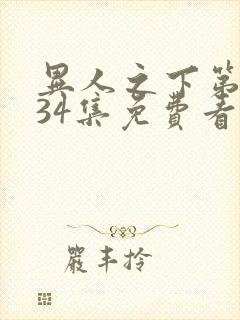 異人之下第
34集免費看
嚴丰拎